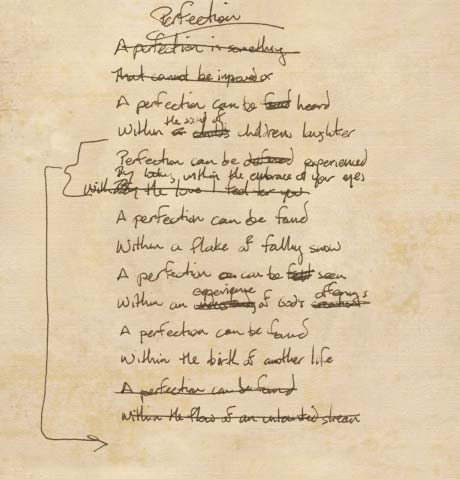 Perfection
A perfection is something
That cannot be improved
A perfection can be heard
Within the sound of childrens laughter
Perfection can be defined experienced
By looking within the embrace of your eyes
the love I feel for you
A perfection can be found
Within a flake of falling snow
A perfection can be felt seen
Within an experience of God's offerings
A perfection can be found
Within the birth of another life
A perfection can be found
Within the flow of an untainted stream